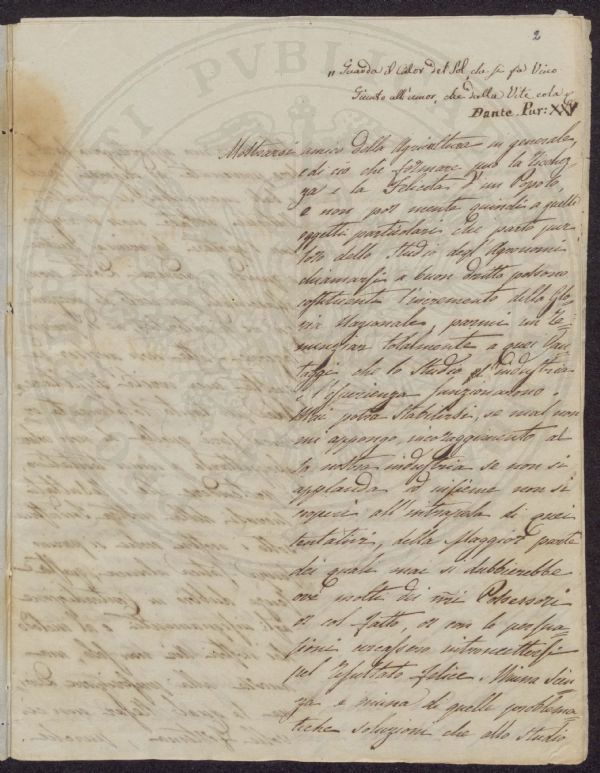 2
„ Guarda il Calor del Sol, che si fa Vino
Giunto all'umor, che dalla Vite cola „
Dante. Pur: XXV
Mostrarsi amico della Agricoltura in generale,
e di ciò che formare può la ricchez-
za e la Felicità d'un Popolo,
e non por mente quindi a quelli
oggetti particolari che parto pur
loro dello Studio degl'Agronomi
chiamarsi a buon dritto possono
costituenti l'incremento della Glo-
ria Nazionale, parmi un re-
nunziar totalmente a quei Van-
taggi che lo Studio l'industria
e l'esperienza
Mai potrà stabilirsi, se mal non
mi appongo, incoraggiamento al-
la nostra industria se non si
applauda ed insieme non si
roperi all'intrapresa di quei
tentativi, della Maggior parte
dei quali mai si dubiterebbe
ove molti di noi Possessori
o col fatto, o con le persua-
sioni cercassero intromettersi
pel resultato felice. Niuna Scien-
za e niuna di quelle problema-
tiche soluzioni che allo Studio